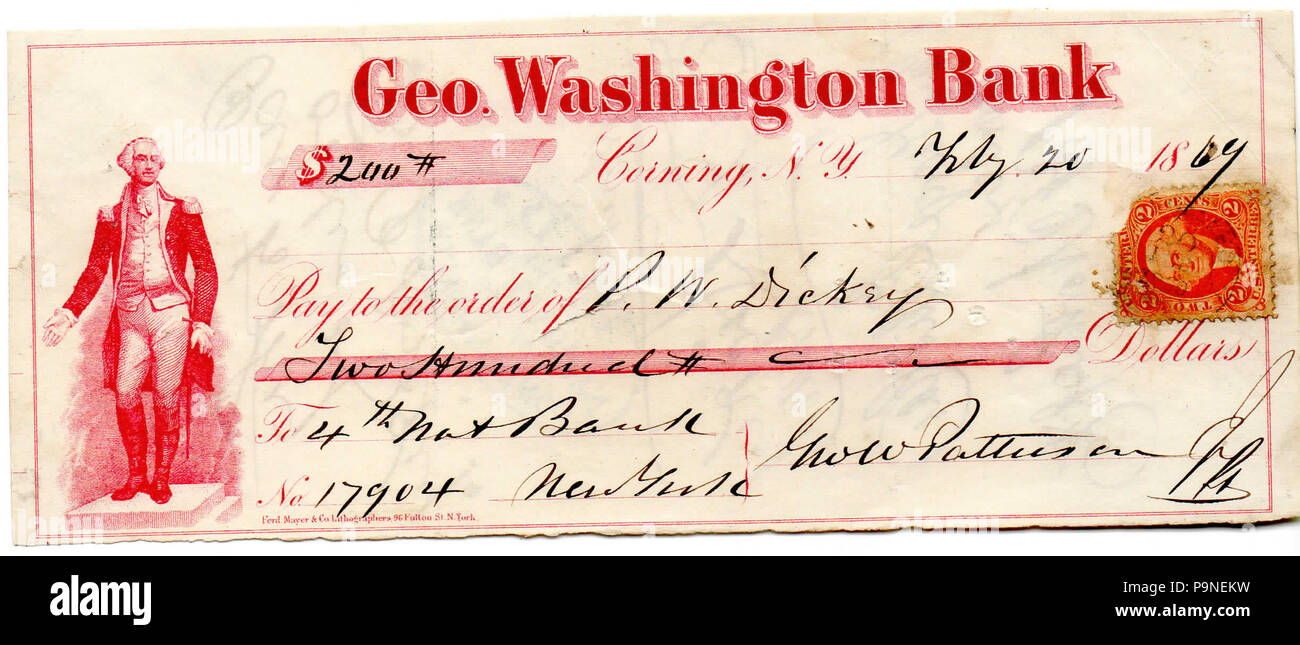 Geo. Washington Bank
$200 #
Corning, N.Y. Feby. 20 1869
Pay to the order of P. W. Dickey
Two Hundred # Dollars
To 4th Nat Bank
No. 17904 New York
Geo W Patterson
Ferd. Mayer & Co. Lithographers, 96 Fulton St. N. York.
2 CENTS 2
U.S. INTER. REV.
TWO
alamy
Image ID: P9NEKW
www.alamy.com